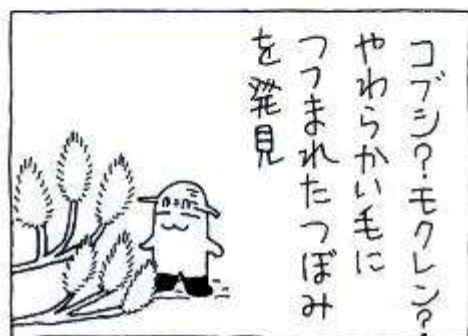 コブシ?モクレン?
やわらかい毛に
つつまれたつぼみ
を発見